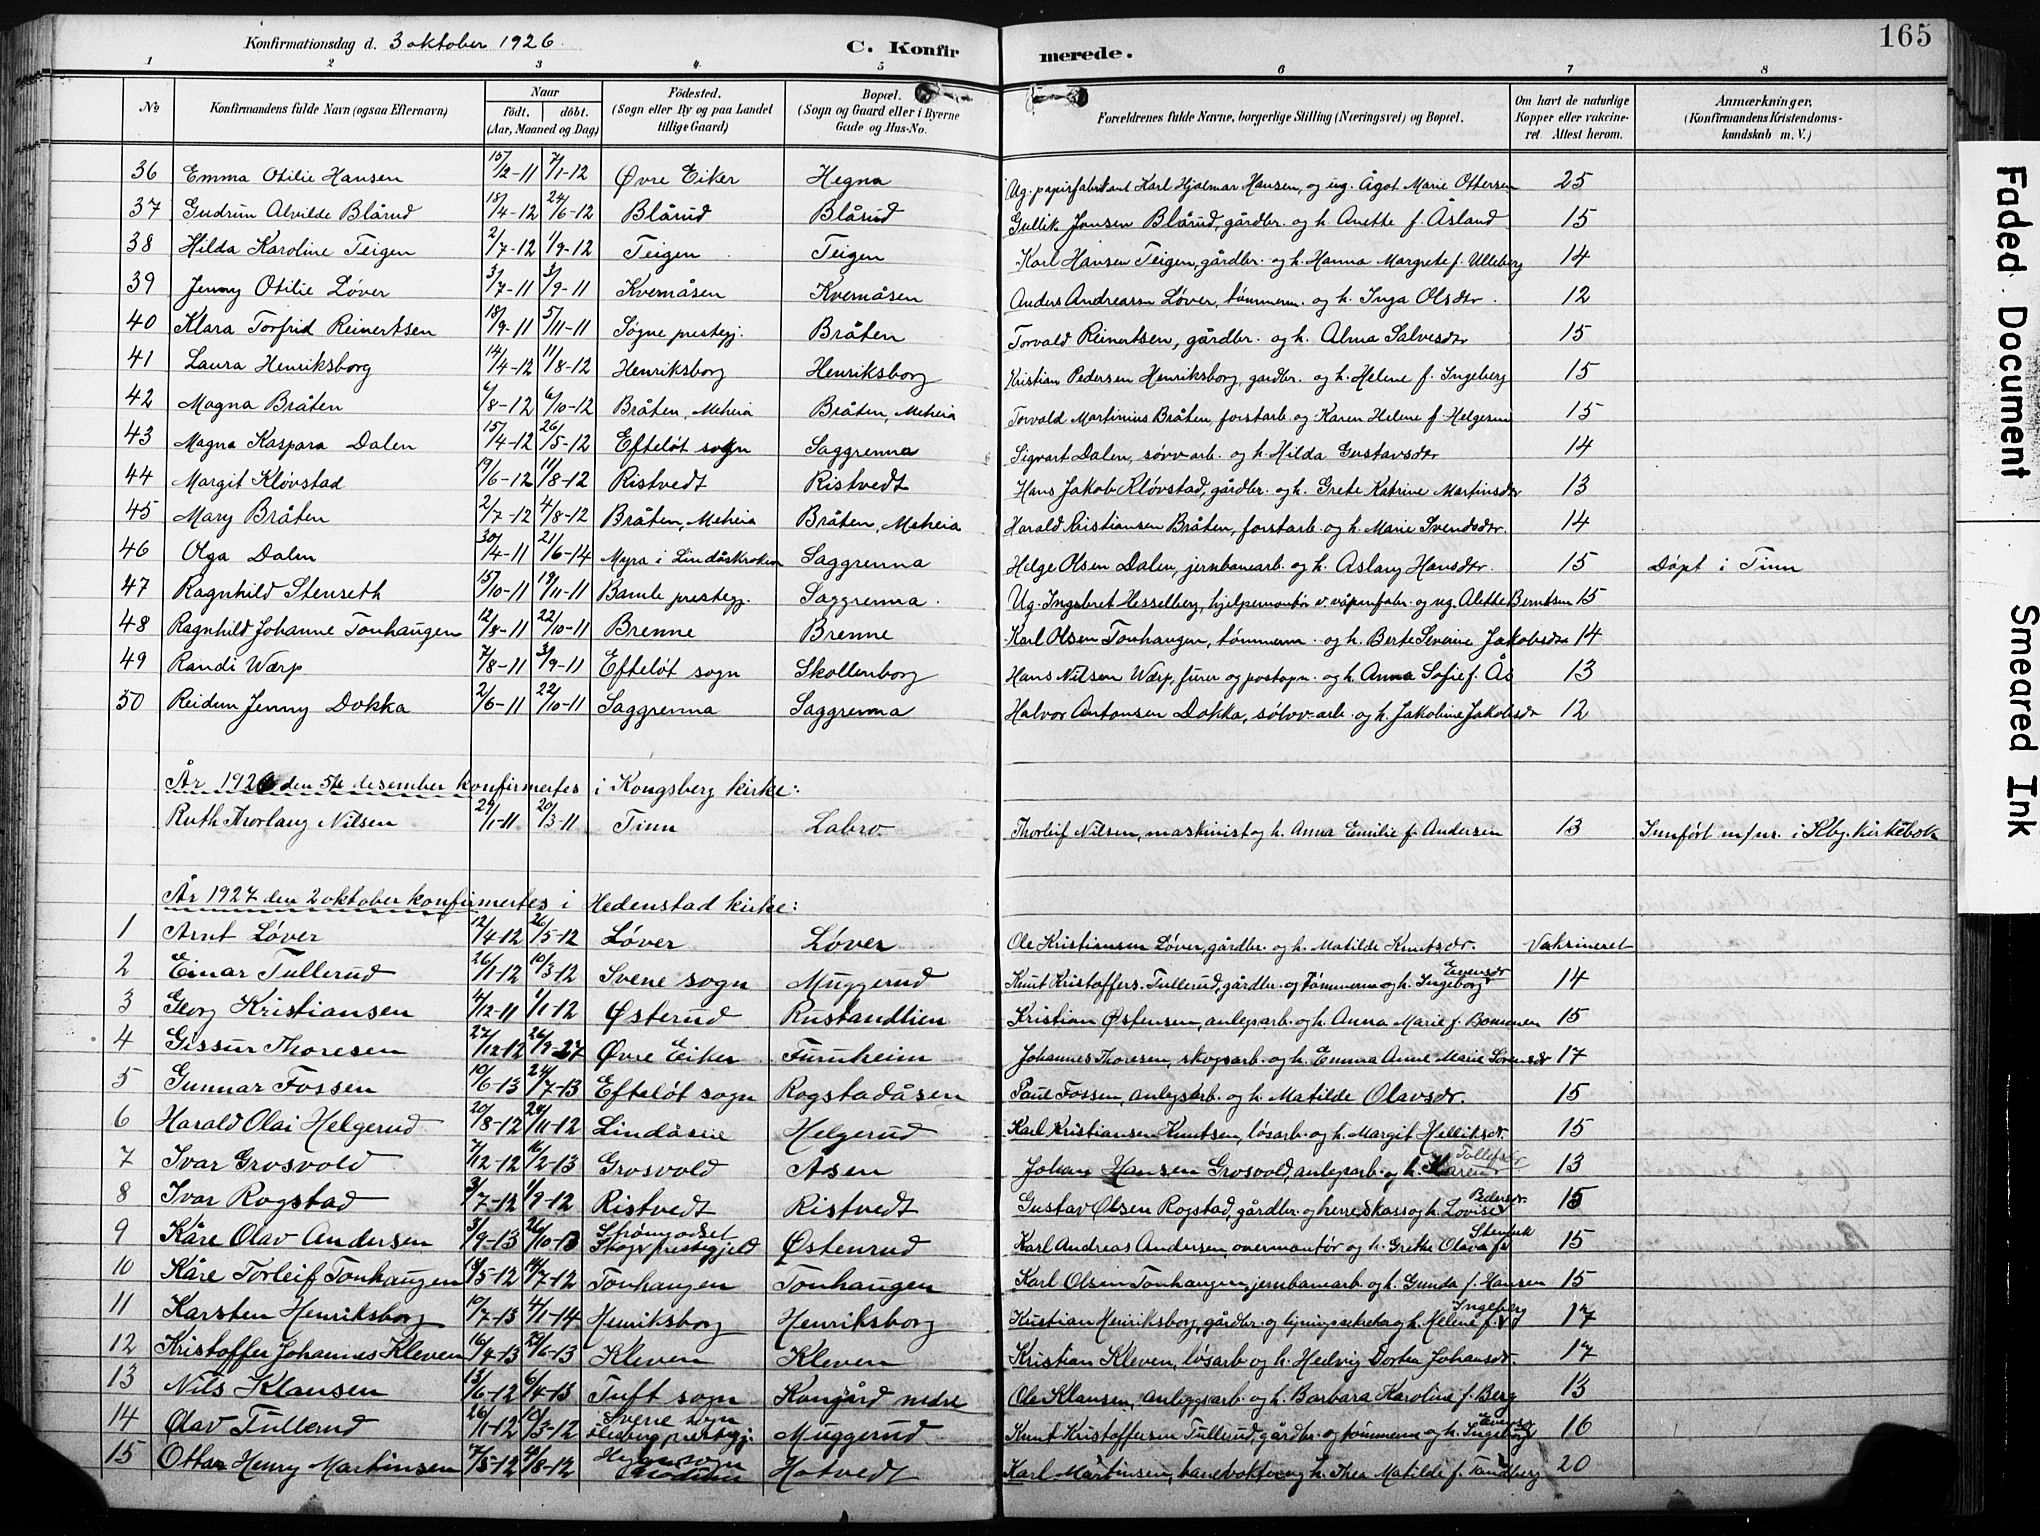 Konfirmationsdag d. 3 oktober 1926. C. Konfirmerede. 165
1 2 3 4 5 6 7 8
No
Konfirmandens fulde Navn (ogsaa Efternavn)
Naar født. døbt. (Aar, Maaned og Dag)
Fødested. (Sogn eller By og paa Landet tillige Gaard)
Bopæl. (Sogn og Gaard eller i Byerne Gade og Hus-No.
Forældrenes fulde Navne, borgerlige Stilling (Næringsvei) og Bopæl.
Om havt de naturlige Kopper eller vakcineret. Attest herom.
Anmærkninger, (Konfirmandens Kristendomskundskab m. V.)
36 Emma Otilie Hansen 15/12-11 7/1-12 Øvre Eiker Hegna Ug. papirfabrikant Karl Hjalmar Hansen, og ug. Ågot Marie Ottersen 25
37 Gudrun Alvilde Blårud 18/4-12 24/6-12 Blårud Blårud Gullik Jensen Blårud, gårdbr. og h. Anette f. Åsland 15
38 Hilda Karoline Teigen 2/7-12 1/9-12 Teigen Teigen Karl Hansen Teigen, gårdbr. og h. Hanna Margrete f. Ulleberg 14
39 Jenny Otilie Løver 3/7-11 3/9-11 Kvernåsen Kvernåsen Anders Andreassen Løver, tømmerm. og h. Inga Olsdtr. 12
40 Klara Torfrid Reinertsen 18/9-11 5/11-11 Søgne prestegj. Bråten Torvald Reinertsen, gårdbr. og h. Alma Salvesdtr 15
41 Laura Henriksborg 14/4-12 11/8-12 Henriksborg Henriksborg Kristian Pedersen Henriksborg, gardbr. og h. Helene f. Ingeberg 15
42 Magna Bråten 6/8-12 6/10-12 Bråten, Meheia Bråten, Meheia Torvald Martinius Bråten, forstarb. og Karen Helene f. Helgesen 15
43 Magna Kaspara Dalen 15/4-12 26/5-12 Efteløt sogn Saggrenna Sigvart Dalen, søvv arb. og h. Hilda Gustavsdtr 14
44 Margit Kløvstad 19/6-12 11/8-12 Ristvedt Ristvedt Hans Jakob Kløvstad, gårdbr. og h. Grete Katrine Martinsdtr 13
45 Mary Bråten 2/7-12 4/8-12 Bråten, Meheia Bråten, Meheia Harald Kristiansen Bråten, forstarb. og h. Marie Svendsdtr. 14
46 Olga Dalen 30/4-11 21/6-14 Myra i Lindåskroken Saggrenna Helge Olsen Dalen, jernbanearb. og h. Aslaug Hansdtr. 15 Døpt i Tinn
47 Ragnhild Stenseth 15/10-11 19/11-11 Bamle prestegj. Saggrenna. Ug. Ingebret Hesselberg, hjelpemontør v. våpenfabr. og ug. Alette Berntsen 15
48 Ragnhild Johanne Tonhaugen 12/8-11 22/10-11 Brenne Brenne Karl Olsen Tonhaugen, tømmerm. og h. Berte Severine Jakobsdtr 14
49 Randi Wærp 7/8-11 3/9-11 Efteløt sogn Skollenborg Hans Nilsen Wærp, furer og postopn. og h. Anna Sofie f. Ås 13
50 Reidun Jenny Dokka 2/6-11 22/10-11 Saggrenna Saggrenna Halvor Antonsen Dokka, sølvv arb. og h. Jakobine Jakobsdtr 12
År 1926 den 5te desember konfirmertes i Kongsberg kirke:
Ruth Thorlaug Nilsen 29/1-11 20/3-11 Tinn Labro Thorleif Nilsen, maskinist og h. Anna Emilie f. Andersen 13 Innført m/nr. i Kbg. kirkebok
År 1927 den 2 oktober konfirmertes i Hedenstad kirke:
1 Arnt Løver 12/4-12 26/5-12 Løver Løver Ole Kristiansen Løver, gårdbr. og h. Matilde Knutsdr. Vaksineret
2 Einar Tullerud 26/1-12 10/3-12 Svene sogn Muggerud Knut Kristoffers. Tullerud, gårdbr. og tømmerm og h. Ingeborg Evensdr 14
3 Georg Kristiansen 4/12-11 1/1-12 Østerud Rustandlien Kristian Østensen, anlegsarb. og h. Anna Marie f. Bommen 15
4 Gissur Thoresen 27/12-12 26/9-27 Øvre Eiker Furuheim Johannes Thoresen, skogsarb. og h. Emma Anne Marie Sørensdr 17
5 Gunnar Fossen 10/6-13 24/7-13 Efteløt sogn Rogstadåsen Paul Fossen, anlegsarb. og h. Matilde Olavsdr. 15
6 Harald Olai Helgerud 20/8-12 24/11-12 Lindåsen Helgerud Karl Kristiansen Knutsen, løsarb. og h. Margit Helliksdr. 15
7 Ivar Grosvold 7/12-12 16/2-13 Grosvold Åsen Johan Hansen Grosvold, anlegsarb. og h. Karen Tollefsdr 13
8 Ivar Rogstad 3/7-12 1/9-12 Ristvedt Ristvedt Gustav Olsen Rogstad, gårdbr. og herredskass og h. Lovise Pedersdr. 15
9 Kåre Olav Andersen 3/9-13 26/10-13 Strømgodset Skoger prestegjeld Østenrud Karl Andreas Andersen, overmontør og h. Grethe Olava f. 15
10 Kåre Torleif Tonhaugen 19/5-12 14/7-12 Tonhaugen Tonhaugen Karl Olsen Tonhaugen, jernbanearb. og h. Gunda f. Hansen 15
11 Karsten Henriksborg 10/7-13 4/1-14 Henriksborg Henriksborg Kristian Henriksborg, gårdbr. og ligningssekretær og h. Helene f. Ingeberg 17
12 Kristoffer Johannes Kleven 16/4-13 29/6-13 Kleven Kleven Kristian Kleven, løsarb og h. Hedvig Dortea Johansdr. 17
13 Nils Klausen 13/6-12 6/4-13 Tuft sogn Kongård nedre Ole Klausen, anleggsarb. og h. Barbara Karoline f. Berg 13
14 Olav Tullerud 26/1-12 10/3-12 Svene sogn Flesberg prestegj. Muggerud Knut Kristoffersen Tullerud, gårdbr. og tømmerm og h. Ingeborg Evensdr 16
15 Ottar Henry Martinsen 7/5-12 4/8-12 sogn Modum Hotvedt Karl Martinsen, banevokter og h. Thea Matilde f. Tandberg 20
Faded Document
Smeared Ink